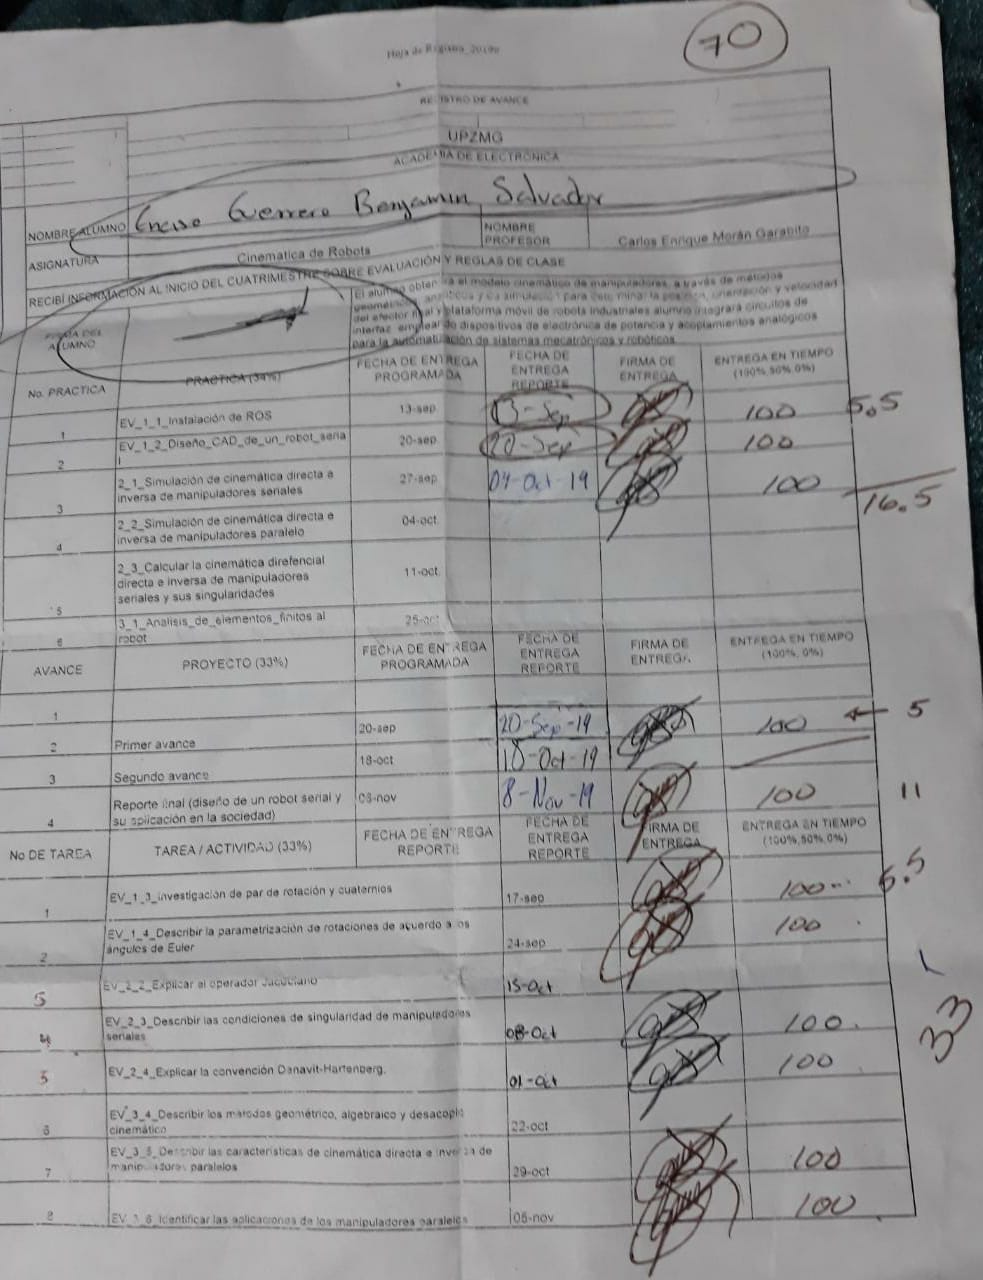 70
Hoja de Registro_2019b
REGISTRO DE AVANCE
UPZMG
ACADEMIA DE ELECTRÓNICA
NOMBRE ALUMNO Enciso Guerrero Benjamin Salvador NOMBRE PROFESOR Carlos Enrique Morán Garabito
ASIGNATURA Cinematica de Robots
RECIBÍ INFORMACIÓN AL INICIO DEL CUATRIMESTRE SOBRE EVALUACIÓN Y REGLAS DE CLASE
FIRMA DEL ALUMNO
El alumno obtendrá el modelo cinemático de manipuladores, a través de métodos
geométricos, analíticos y de simulación para determinar la posición, orientación y velocidad
del efector final y plataforma móvil de robots industriales alumno integrará circuitos de
interfaz empleando dispositivos de electrónica de potencia y acoplamientos analógicos
para la automatización de sistemas mecatrónicos y robóticos
No. PRACTICA PRACTICA (34%) FECHA DE ENTREGA PROGRAMADA FECHA DE ENTREGA REPORTE FIRMA DE ENTREGA ENTREGA EN TIEMPO (100%,50%,0%)
1 EV_1_1_Instalación de ROS 13-sep 13-Sep 100 5.5
2 EV_1_2_Diseño_CAD_de_un_robot_serial 20-sep 20-Sep 100
3 2_1_Simulación de cinemática directa e inversa de manipuladores seriales 27-sep 04-Oct-19 100 16.5
4 2_2_Simulación de cinemática directa e inversa de manipuladores paralelo 04-oct
5 2_3_Calcular la cinemática direfencial directa e inversa de manipuladores seriales y sus singularidades 11-oct
6 3_1_Analisis_de_elementos_finitos al robot 25-oct
AVANCE PROYECTO (33%) FECHA DE ENTREGA PROGRAMADA FECHA DE ENTREGA REPORTE FIRMA DE ENTREGA ENTREGA EN TIEMPO (100%, 0%)
1
2 Primer avance 20-sep 20-Sep-19 100 5
3 Segundo avance 18-oct 18-Oct-19
4 Reporte final (diseño de un robot serial y su aplicación en la sociedad) 08-nov 8-Nov-19 100 11
No DE TAREA TAREA / ACTIVIDAD (33%) FECHA DE ENTREGA REPORTE FECHA DE ENTREGA REPORTE FIRMA DE ENTREGA ENTREGA EN TIEMPO (100%,50%,0%)
1 EV_1_3_Investigación de par de rotación y cuaternios 17-sep 100 5.5
2 EV_1_4_Describir la parametrización de rotaciones de acuerdo a los ángulos de Euler 24-sep 100
5 EV_2_2_Explicar el operador Jacobiano 15-Oct
4 EV_2_3_Describir las condiciones de singularidad de manipuladores seriales 08-Oct 100 33
3 EV_2_4_Explicar la convención Denavit-Hartenberg. 01-Oct 100
6 EV_3_4_Describir los métodos geométrico, algebraico y desacoplo cinemático 22-oct
7 EV_3_5_Describir las características de cinemática directa e inversa de manipuladores paralelos 29-oct 100
8 EV_3_6_Identificar las aplicaciones de los manipuladores paralelos 05-nov 100